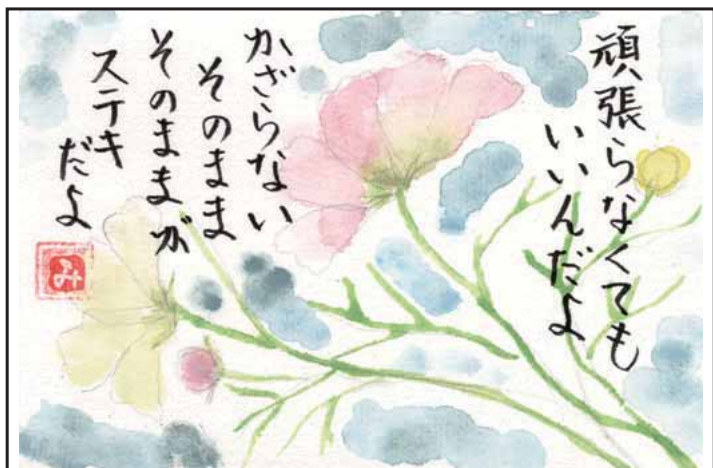 頑張らなくても
いいんだよ
かざらない
そのまま
そのままが
ステキ
だよ
み